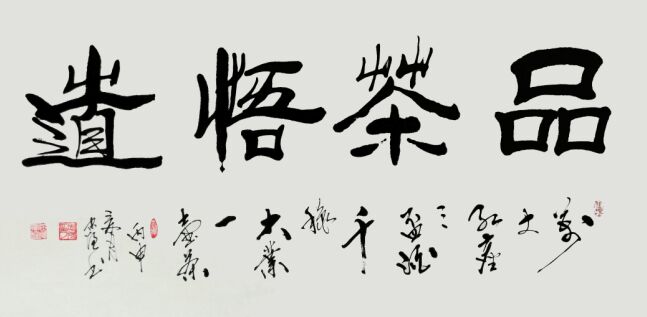 品茶悟道
万丈红尘三盃酒千秋大業一壶茶 丙申 月 书